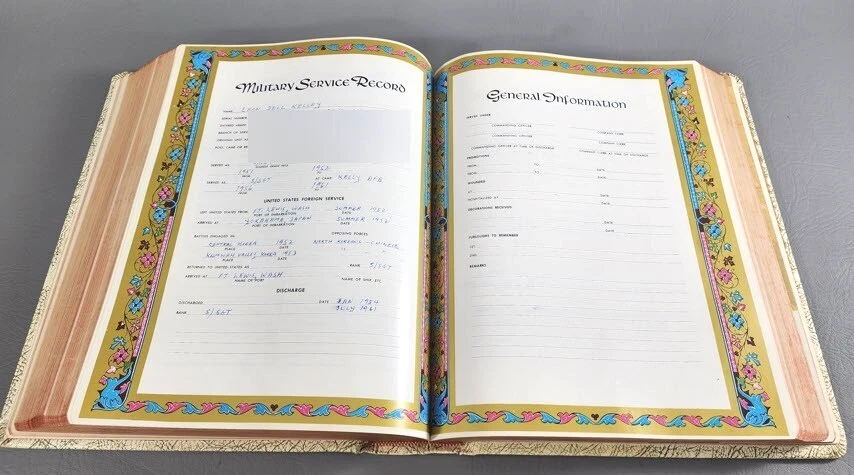 Military Service Record
NAME LEON DELL KELLEY
SERIAL NUMBER
SERVED AS
1951 1952
FROM TO
SERVED AS S/SGT AT CAMP KELLY AFB
1961
FROM TO
UNITED STATES FOREIGN SERVICE
LEFT UNITED STATES FROM FT. LEWIS, WASH SUMMER 1952
PORT OF EMBARKATION DATE
ARRIVED AT YOKAHAMA JAPAN SUMMER 1952
PORT OF DEBARKATION DATE
BATTLES ENGAGED IN OPPOSING FORCES
CENTRAL KOREA 1952 NORTH KOREANS - CHINESE
PLACE DATE
VALLEY KOREA 1953 " "
PLACE DATE
RETURNING TO UNITED STATES AS RANK S/SGT
ARRIVED AT FT. LEWIS, WASH.
NAME OF PORT NAME OF SHIP, ETC.
DISCHARGE
DISCHARGED DATE JAN 1954
RANK S/SGT JULY 1961
General Information
SERVED UNDER
COMMANDING OFFICER COMPANY CMDR.
COMMANDING OFFICER COMPANY CMDR.
COMMANDING OFFICER AT TIME OF DISCHARGE COMPANY CMDR. AT TIME OF DISCHARGE
PROMOTIONS
FROM TO DATE
FROM TO DATE
WOUNDED
AT DATE
HOSPITALIZED AT DATE
DECORATIONS RECEIVED
DATE
DATE
FURLOUGHS TO REMEMBER
1ST
2ND
REMARKS